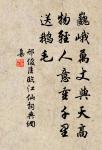 巍峨萬丈與天高
物輕人意重千里
送鵝毛
邢俊臣臨江仙詞典網
集